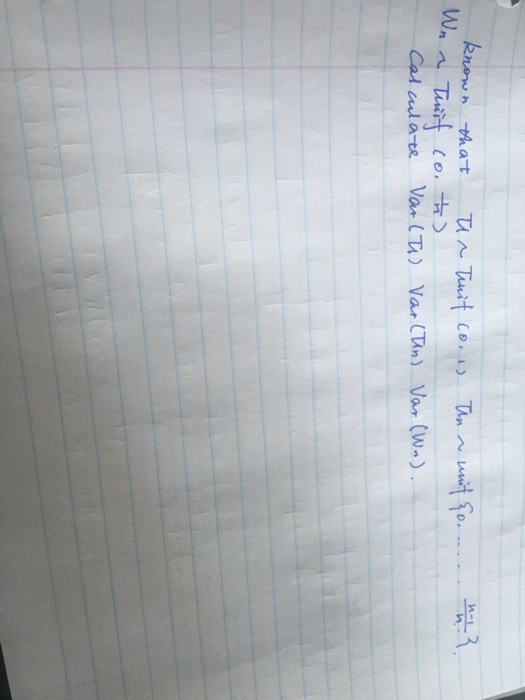 known that U ~ Unif (0, 1) Un ~ unif {0, ..... , n-1/n}.
Wn ~ Unif (0, 1/n)
Calculate Var(U) Var(Un) Var(Wn).